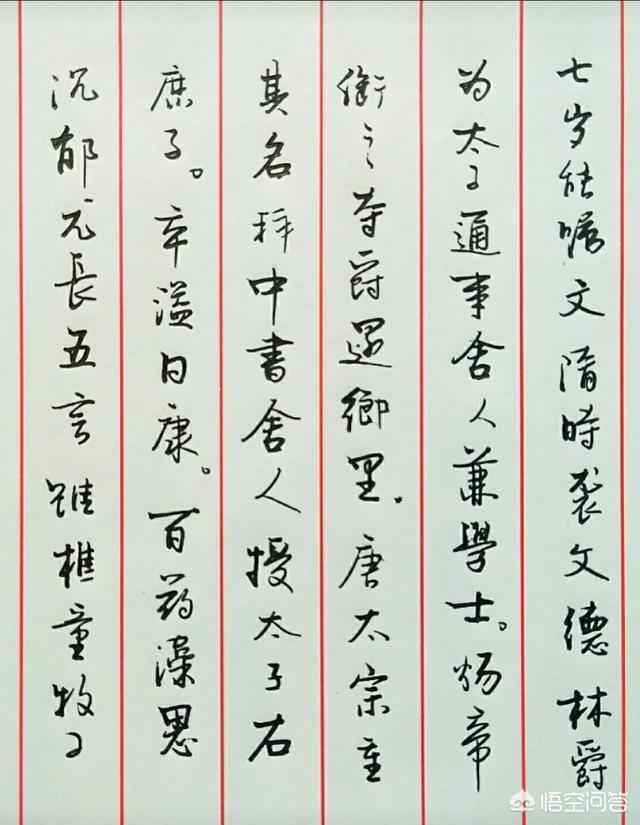 七岁能嘱文隋時袭文德林爵
为太子通事舍人兼學士。炀帝
衔之夺爵还鄉里。唐太宗重
其名拜中書舍人授太子右
庶子。卒溢曰康。百药藻思
沉郁尤長五言雖樵童牧子
悟空问答